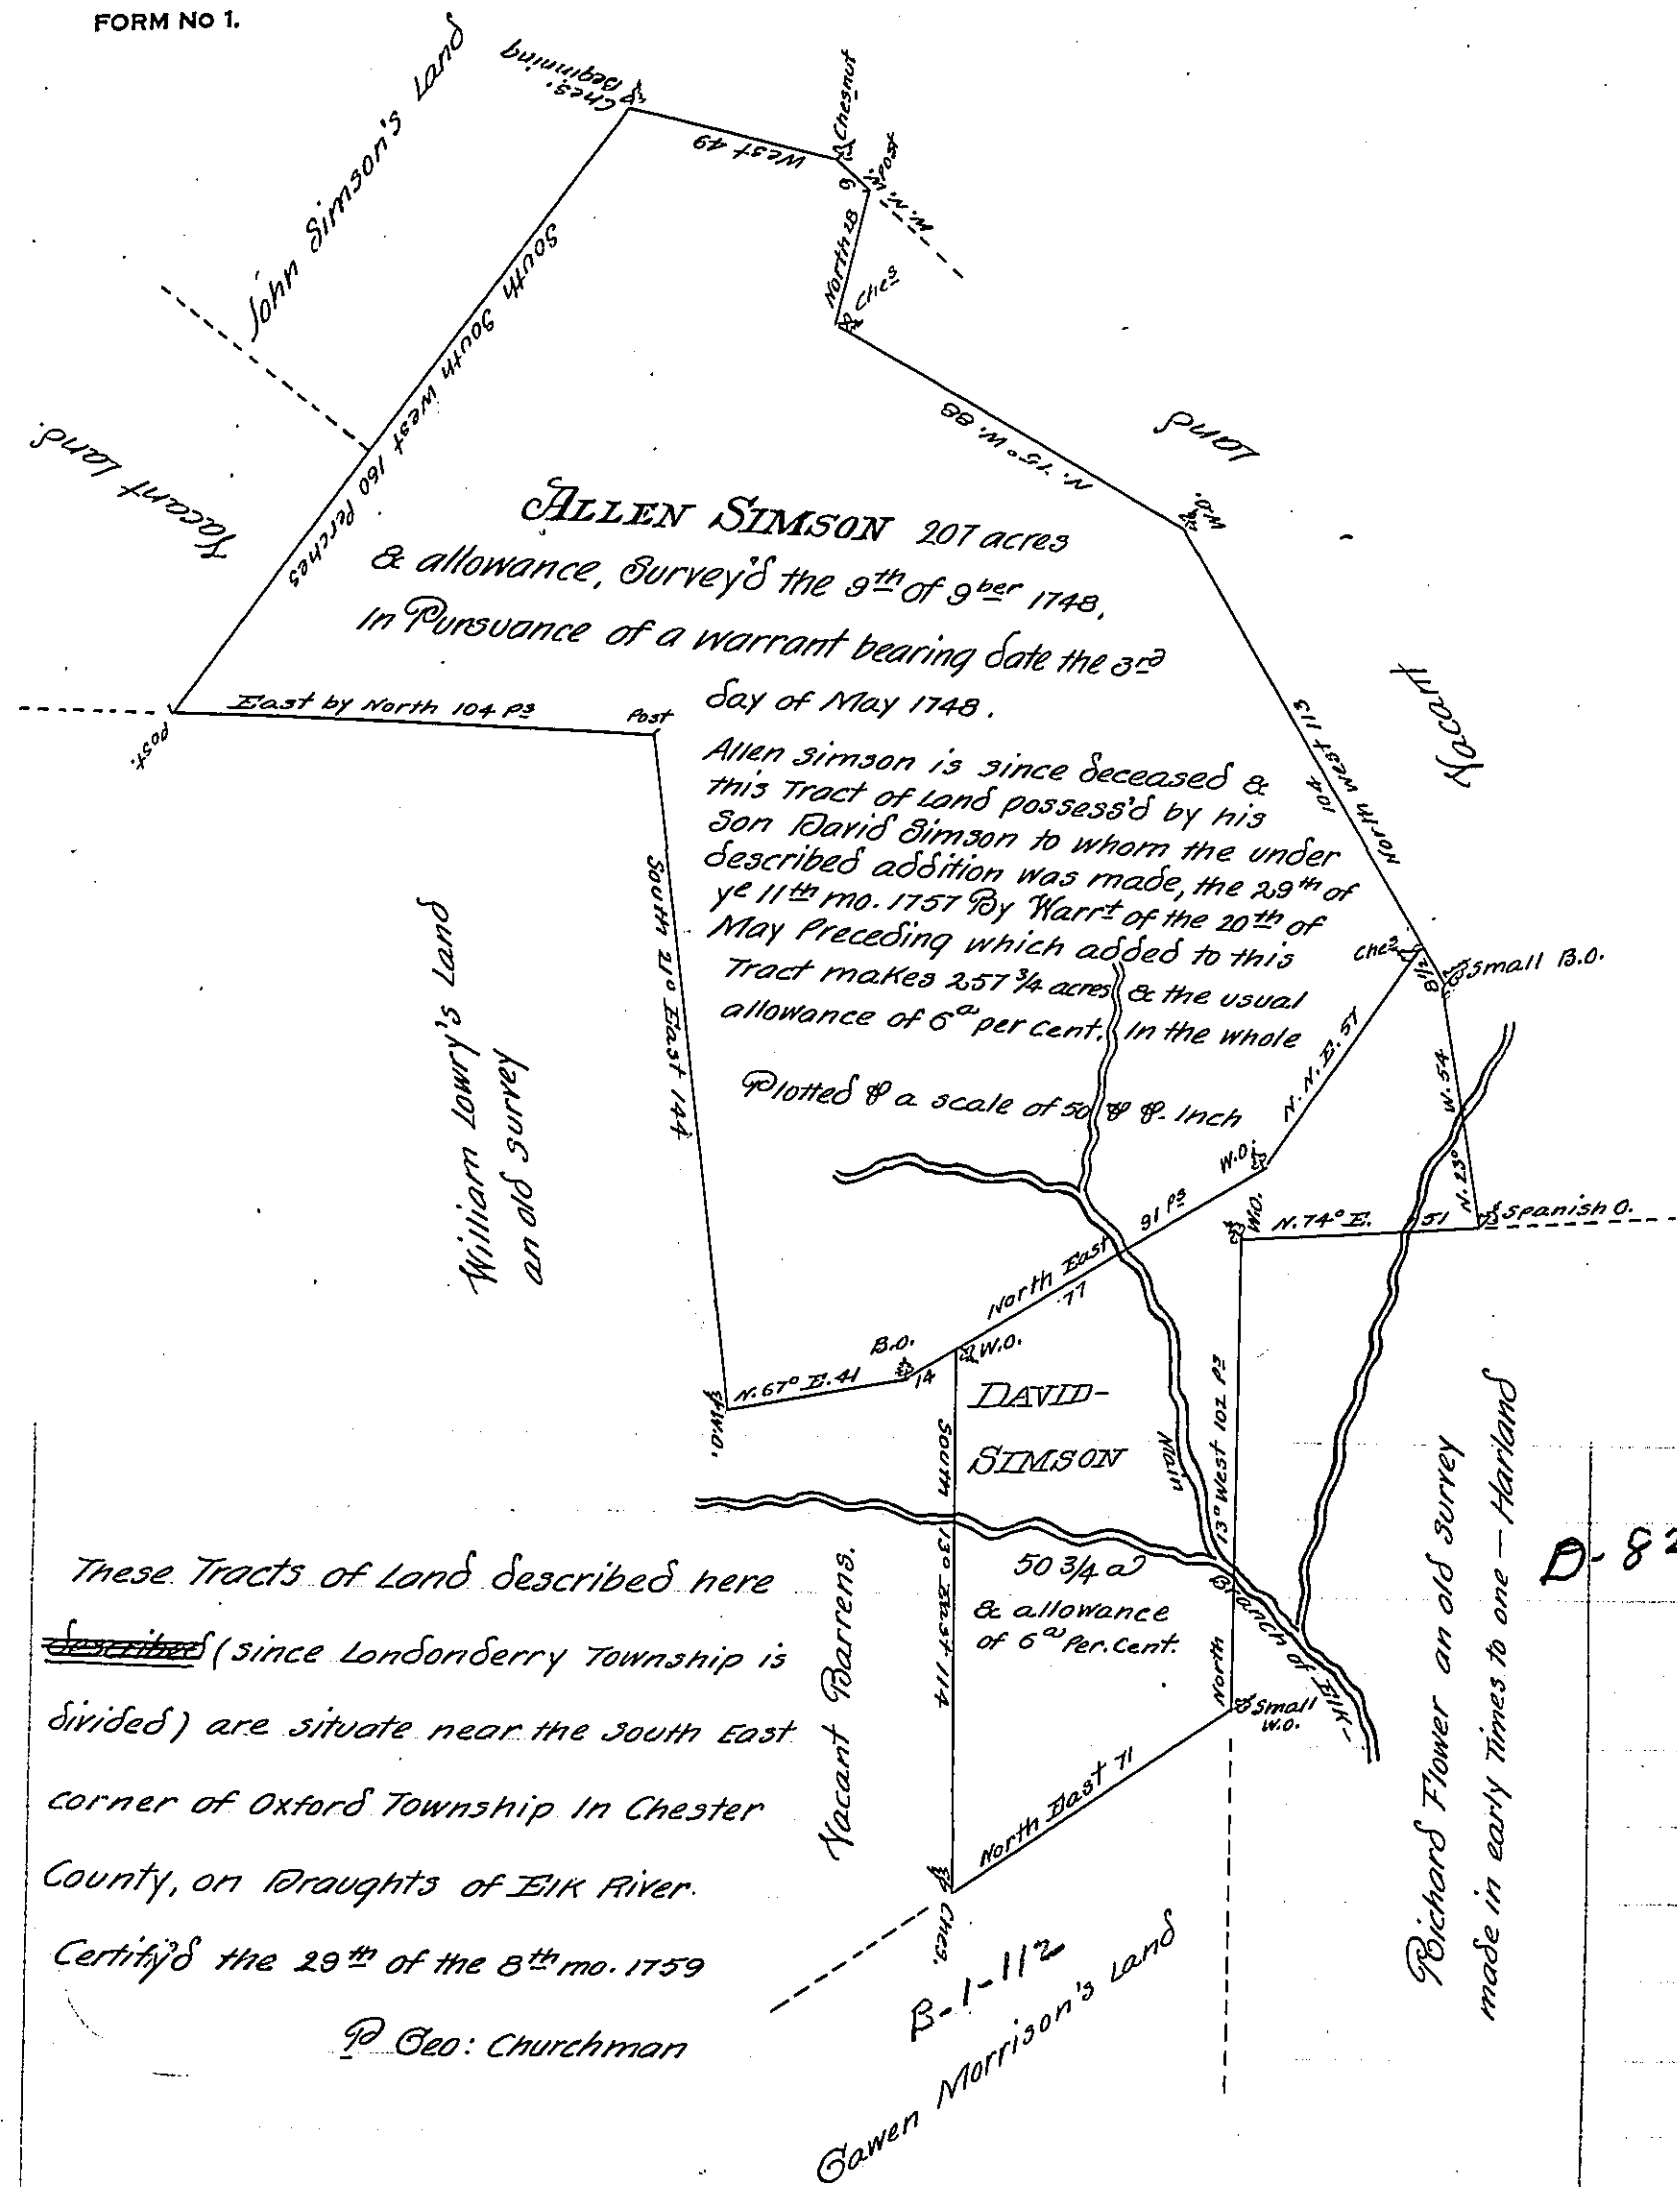 FORM No 1.
John Simson's Land
Ches.
Beginning
West 49
Chesnut
9
Post
W.N.W.
North 28
Ches
N. 75° W. 88
Land
W.O.
South South West 160 Perches
Vacant Land.
ALLEN SIMSON 207 acres
& allowance, Survey'd the 9th of 9ber 1748,
In Pursuance of a warrant bearing date the 3rd
day of May 1748.
Allen Simson is since deceased &
this Tract of Land possess'd by his
Son David Simson to whom the under
described addition was made, the 29th of
ye 11th mo. 1757 By Warrt of the 20th of
May Preceding which added to this
Tract makes 257 3/4 acres & the usual
allowance of 6a per Cent. In the whole
Plotted P a scale of 50 P P. Inch
North West 113
104
Vacant
Post.
East by North 104 Ps
Post
South 21° East 144
William Lowry's Land
an old survey
Ches
8 1/2
Small B.O.
N.N.E. 57
N. 23° W. 54
W.O.
91 Ps
North East
77
W.O.
N. 74° E. 51
Spanish O.
B.O.
14
W.O.
N. 67° E. 41
W.O.
DAVID-
SIMSON
50 3/4 a
& allowance
of 6a Per. Cent.
South 13° East 114
North 13° West 102 Ps
Main
Branch of Elk-
Small
W.O.
North East 71
Ches.
Vacant Barrens.
Richard Flower an old survey
made in early Times to one - Harland
D-82
These Tracts of Land described here
described (since Londonderry Township is
divided) are situate near the South East
corner of Oxford Township In Chester
County, on Draughts of Elk River.
Certify'd the 29th of the 8th mo. 1759
P Geo: Churchman
B-1-112
Gawen Morrison's Land